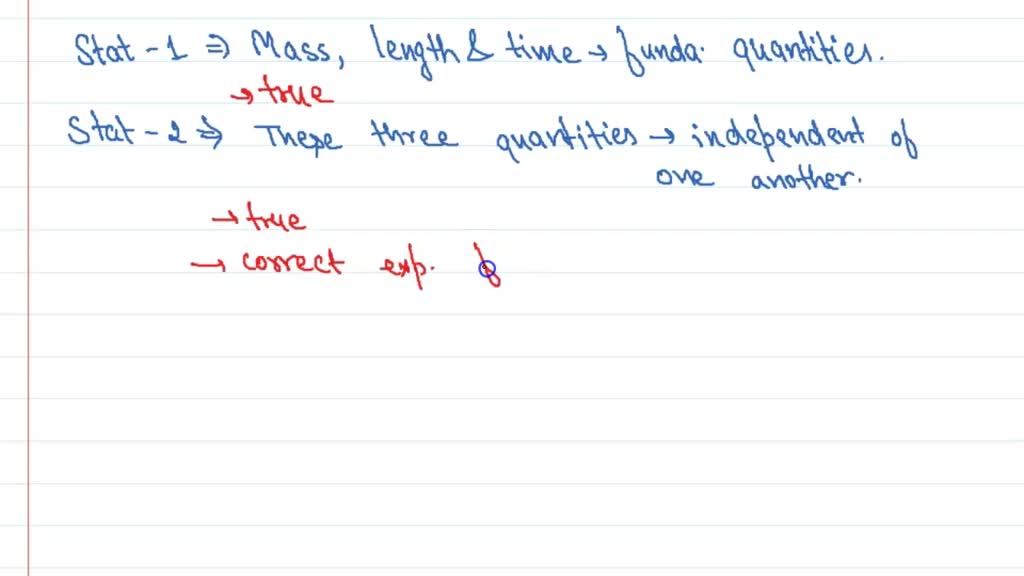 Stat - 1 ⇒ Mass, length & time → funda. quantities.
→ true
Stat - 2 ⇒ These three quantities → independent of
one another.
→ true
→ correct exp. f